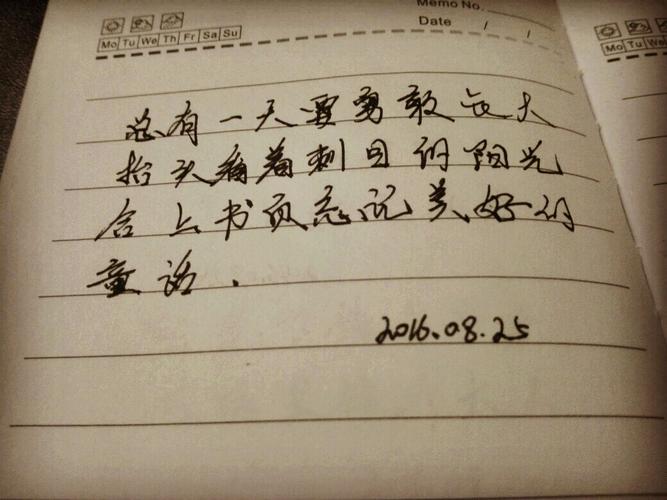 Memo No.
Mo Tu We Th Fr Sa Su
Date / /
Mo Tu We
总有一天要勇敢长大
抬头看着刺目的阳光
合上书页忘记美好的
童话.
2016.08.25